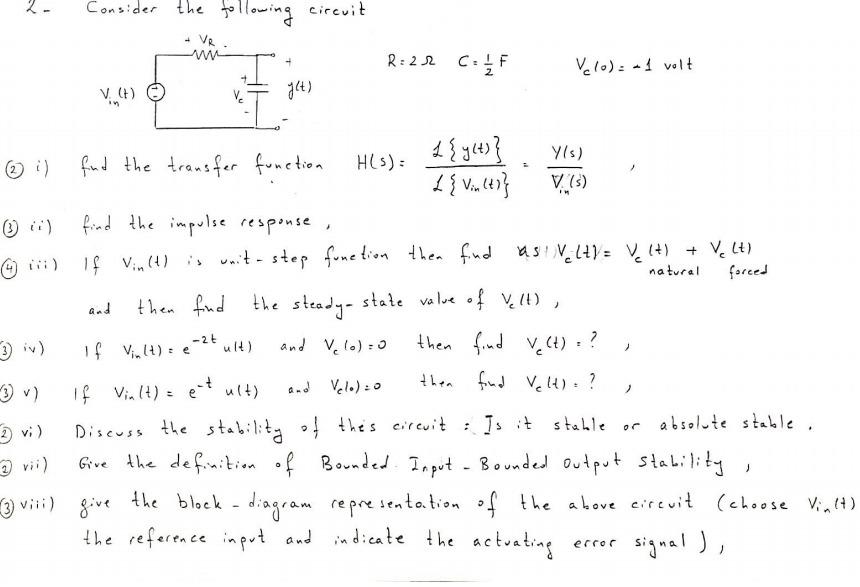 2- Consider the following circuit
+ VR -
R = 2 Ω   C = 1/2 F   Vc(0) = -1 volt
Vin(t)   + Vc -   + y(t) -
② i) find the transfer function H(s) = L{y(t)} / L{Vin(t)} = Y(s) / Vin(s) ,
③ ii) find the impulse response ,
④ iii) If Vin(t) is unit-step function then find as Vc(t) = Vc(t) + Vc(t)
natural   forced
and then find the steady-state value of Vc(t) ,
③ iv) If Vin(t) = e^-2t u(t) and Vc(0) = 0 then find Vc(t) = ? ,
③ v) If Vin(t) = e^-t u(t) and Vc(0) = 0 then find Vc(t) = ? ,
② vi) Discuss the stability of this circuit : Is it stable or absolute stable .
② vii) Give the definition of Bounded Input - Bounded Output Stability ,
③ viii) give the block-diagram representation of the above circuit (choose Vin(t)
the reference input and indicate the actuating error signal ) ,